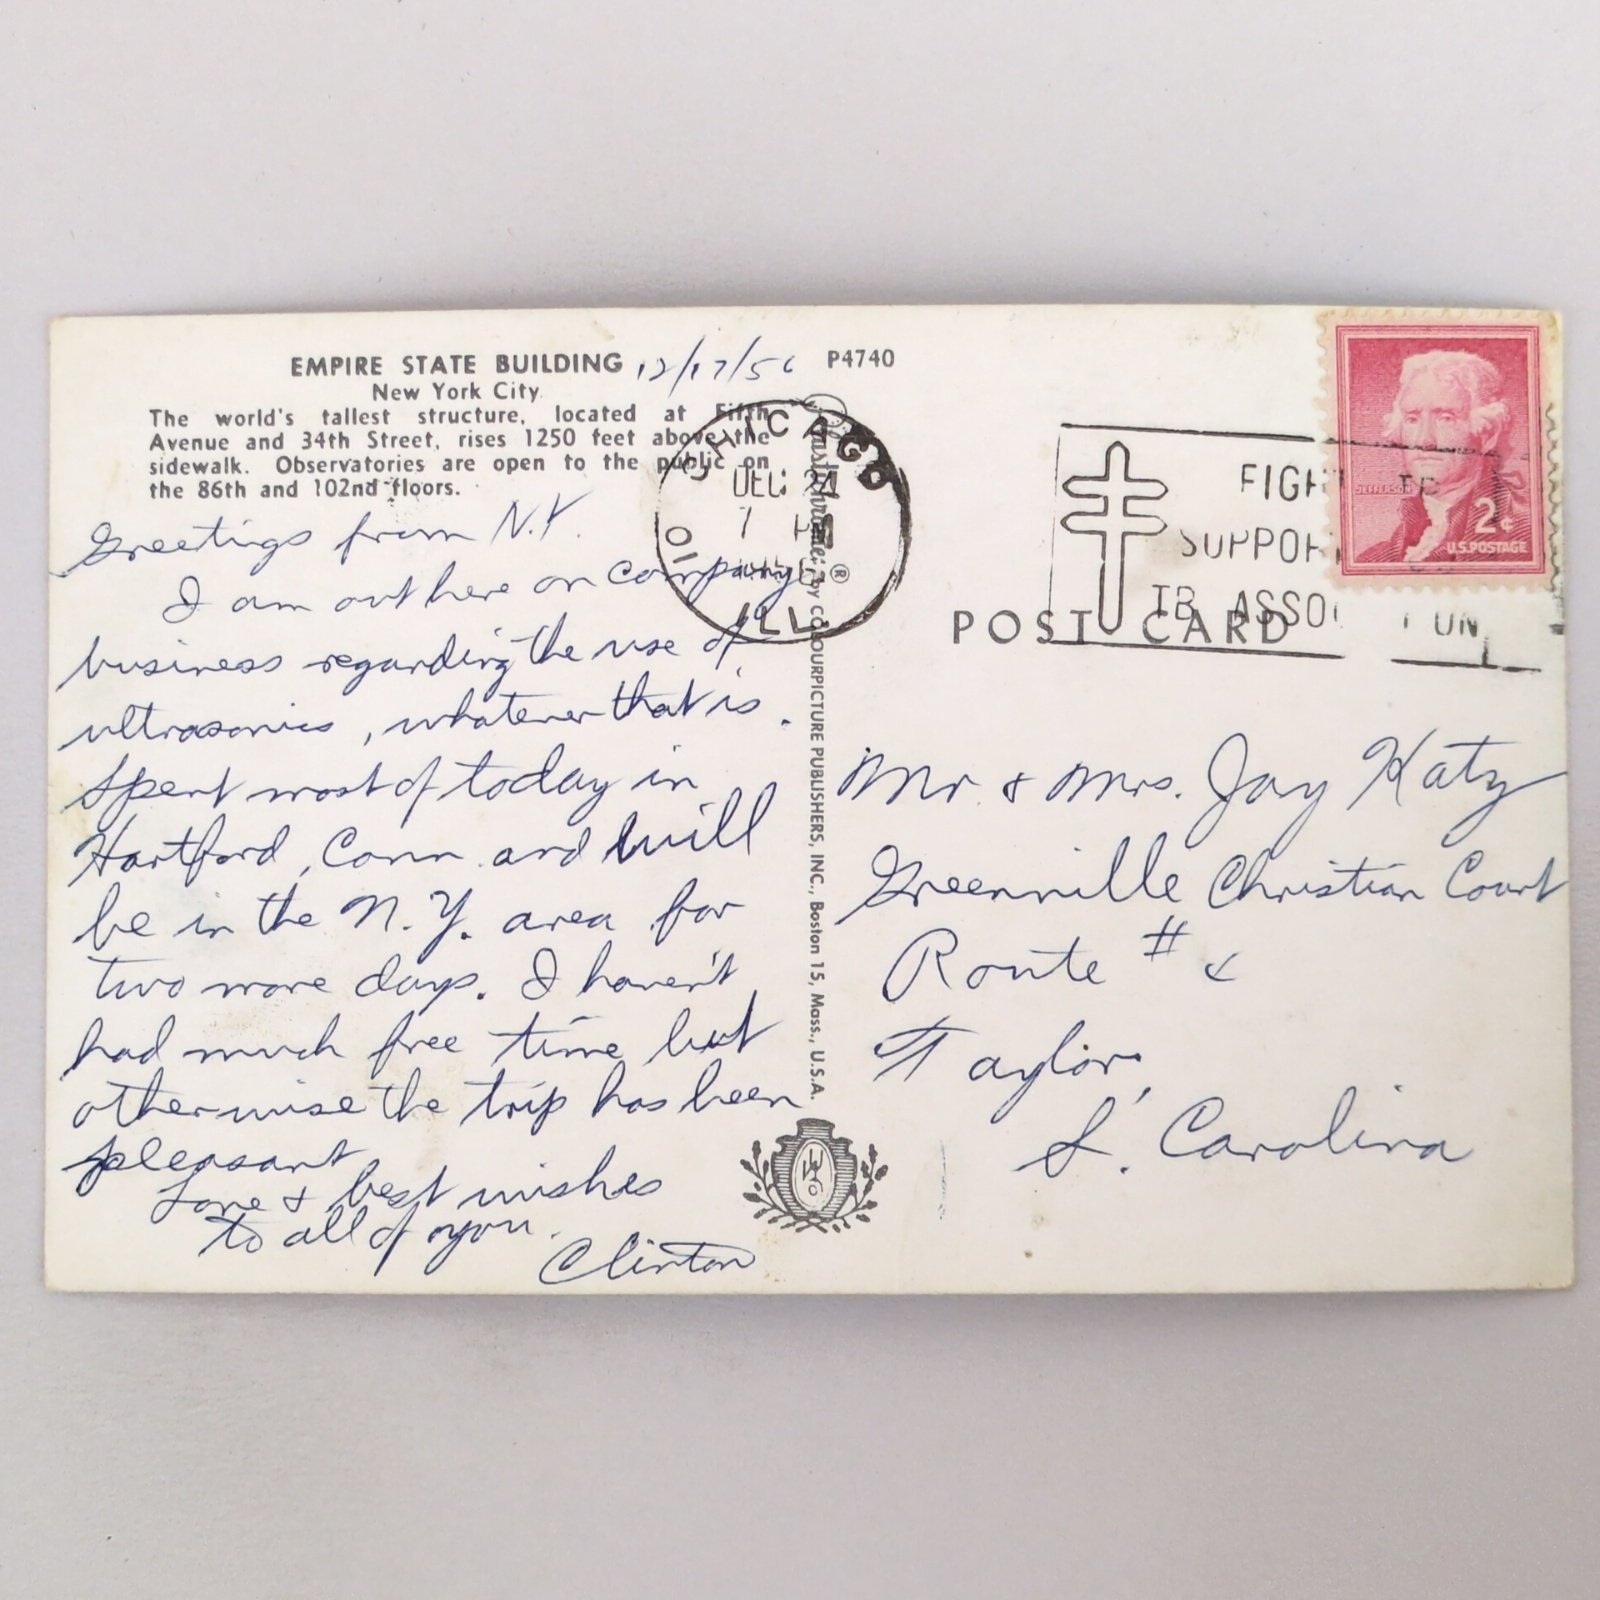 EMPIRE STATE BUILDING 12/17/56 P4740
New York City
The world's tallest structure, located at Fifth
Avenue and 34th Street, rises 1250 feet above the
sidewalk. Observatories are open to the public on
the 86th and 102nd floors.
Greetings from N.Y.
I am out here on company
business regarding the use of
ultrasonics, whatever that is.
Spent most of today in
Hartford, Conn. and will
be in the N.Y. area for
two more days. I haven't
had much free time but
otherwise the trip has been
pleasant
Love & best wishes
to all of you.
Clinton
CHICAGO
DEC 24
7 PM
ILL.
Plastichrome ® by COLOURPICTURE PUBLISHERS, INC., Boston 15, Mass., U.S.A.
FIGHT TB
SUPPORT
TB ASSOCIATION
JEFFERSON
2¢
U.S. POSTAGE
POST CARD
Mr & Mrs. Jay Katz
Greenville Christian Court
Route #
Taylor,
S. Carolina